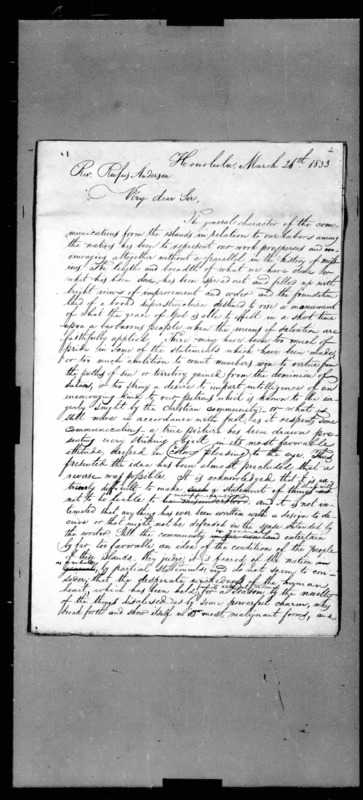 Honolulu, March 26th 1833
Rev. Rufus Anderson
Very dear Sir,
The general character of the com-
munications from the islands in relation to our labors among
the natives has been to represent our work prosperous and en-
couraging altogether without a parallel in the history of mis-
sions. The length and breadth of what we have done or
what has been done, has been spread out and filled up with
bright views of improvement, and order and the foundation
laid of a broad superstructure destined to rise a monument
of what the grace of God is able to effect in a short time
upon a barbarous people when the means of salvation are
faithfully applied. There may have been too much of
pride in some of the statements which have been made
or too much ambition to count numbers won to virtue from
the paths of sin or territory gained from the dominion of
Satan, or too strong a desire to impart intelligence of an
encouraging kind to our patrons which is known to be ea-
gerly sought by the Christian community; or what is
still more in accordance with fact, as it respects some
communications, a true picture has been drawn pre-
senting every striking object in its most favorable
attitude, dressed in colors pleasing to the eye. Thus
presented the idea has been almost precluded that a
reverse was possible. It is acknowledged that it is ex-
tremely difficult to make a statement of things
not to be liable to misapprehension and it is not in-
timated that any thing has ever been written with a design to de-
ceive or that might not be defended in the sense intended by
the writer. Still the community entertain
by far too favorable an idea of the condition of the people
of these islands, they judge, it is feared of the nation
by partial statements and do not seem to con-
sider, that the desperate wickedness of the human
heart, which has been held for a season by the novelty
of the things disclosed or by some powerful charm, may
break forth and show itself in its most malignant forms, and